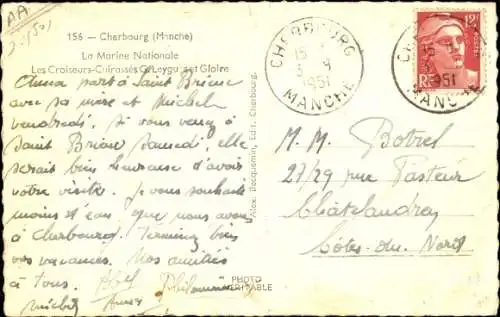 AA
156 — Cherbourg (Manche)
La Marine Nationale
Les Croiseurs-Cuirassés G. Leygues et Gloire
Anna part à Saint Brieuc
avec sa mère et Michel
vendredi. Si vous venez à
Saint Brieuc Samedi, elle
serait bien heureuse d'avoir
votre visite. Je vous souhaite
moins d'eau que nous avons
à Cherbourg. Terminez bien
vos vacances. Nos amitiés
à tous.
Michel Anna
PHOTO
VÉRITABLE
Alex. Jacquemin, Edit. Cherbourg.
CHERBOURG
15
3 - 9
1951
MANCHE
12F
RF
CHERBOURG
15
1951
MANCHE
M. M. Botrel
27/29 rue Pasteur
Châtelaudren
Côtes-du-Nord